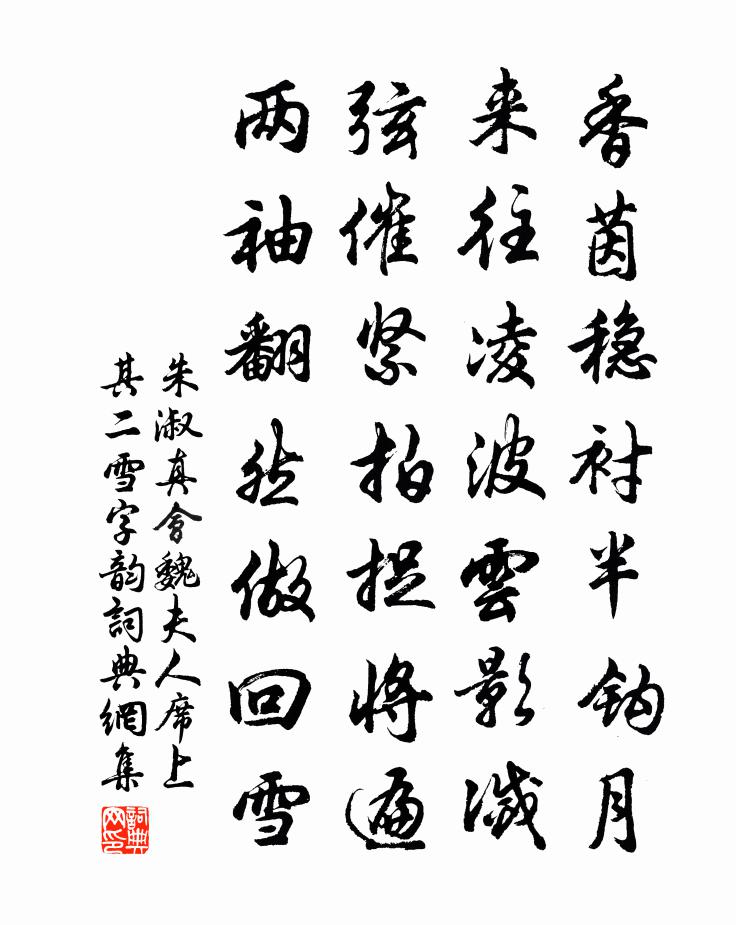 香茵稳衬半钩月
来往凌波雲影滅
弦催紧拍捉將遍
两袖翻然做回雪
朱淑真會魏夫人席上
其二雪字韵詞典網集
詞典网印